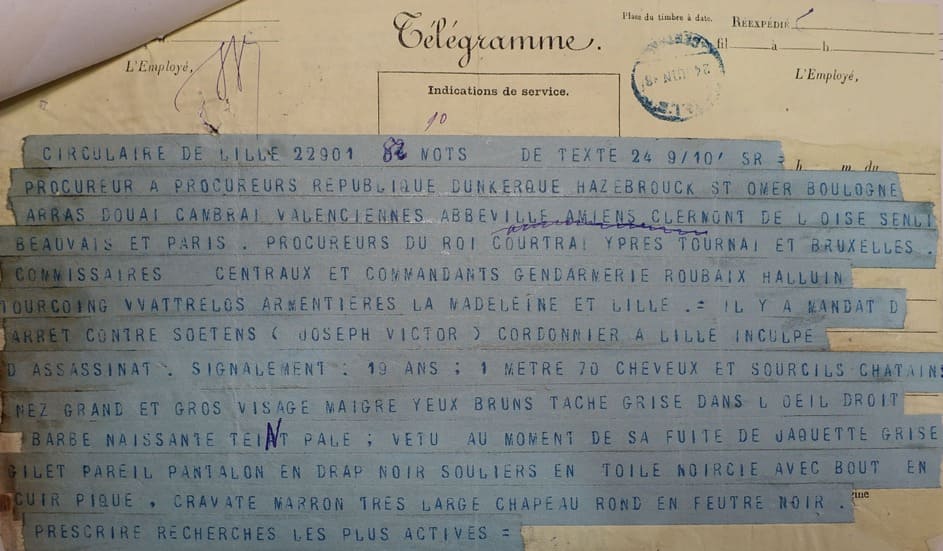 Télégramme.
Place du timbre à date.
RÉEXPÉDIÉ
fil à h
L'Employé,
L'Employé,
24 JUIN
Indications de service.
10
h m du
CIRCULAIRE DE LILLE 22901 82 MOTS DE TEXTE 24 9/10' SR =
PROCUREUR A PROCUREURS REPUBLIQUE DUNKERQUE HAZEBROUCK ST OMER BOULOGNE
ARRAS DOUAI CAMBRAI VALENCIENNES ABBEVILLE AMIENS CLERMONT DE L OISE SENLI
BEAUVAIS ET PARIS . PROCUREURS DU ROI COURTRAI YPRES TOURNAI ET BRUXELLES .
COMMISSAIRES CENTRAUX ET COMMANDANTS GENDARMERIE ROUBAIX HALLUIN
TOURCOING VVATTRELOS ARMENTIERES LA MADELEINE ET LILLE . = IL Y A MANDAT D
ARRET CONTRE SOETENS ( JOSEPH VICTOR ) CORDONNIER A LILLE INCULPE
D ASSASSINAT . SIGNALEMENT : 19 ANS ; 1 METRE 70 CHEVEUX ET SOURCILS CHATAINS
NEZ GRAND ET GROS VISAGE MAIGRE YEUX BRUNS TACHE GRISE DANS L OEIL DROIT
BARBE NAISSANTE TEINT PALE ; VETU AU MOMENT DE SA FUITE DE JAQUETTE GRISE
GILET PAREIL PANTALON EN DRAP NOIR SOULIERS EN TOILE NOIRCIE AVEC BOUT EN
CUIR PIQUE , CRAVATE MARRON TRES LARGE CHAPEAU ROND EN FEUTRE NOIR .
PRESCRIRE RECHERCHES LES PLUS ACTIVES =